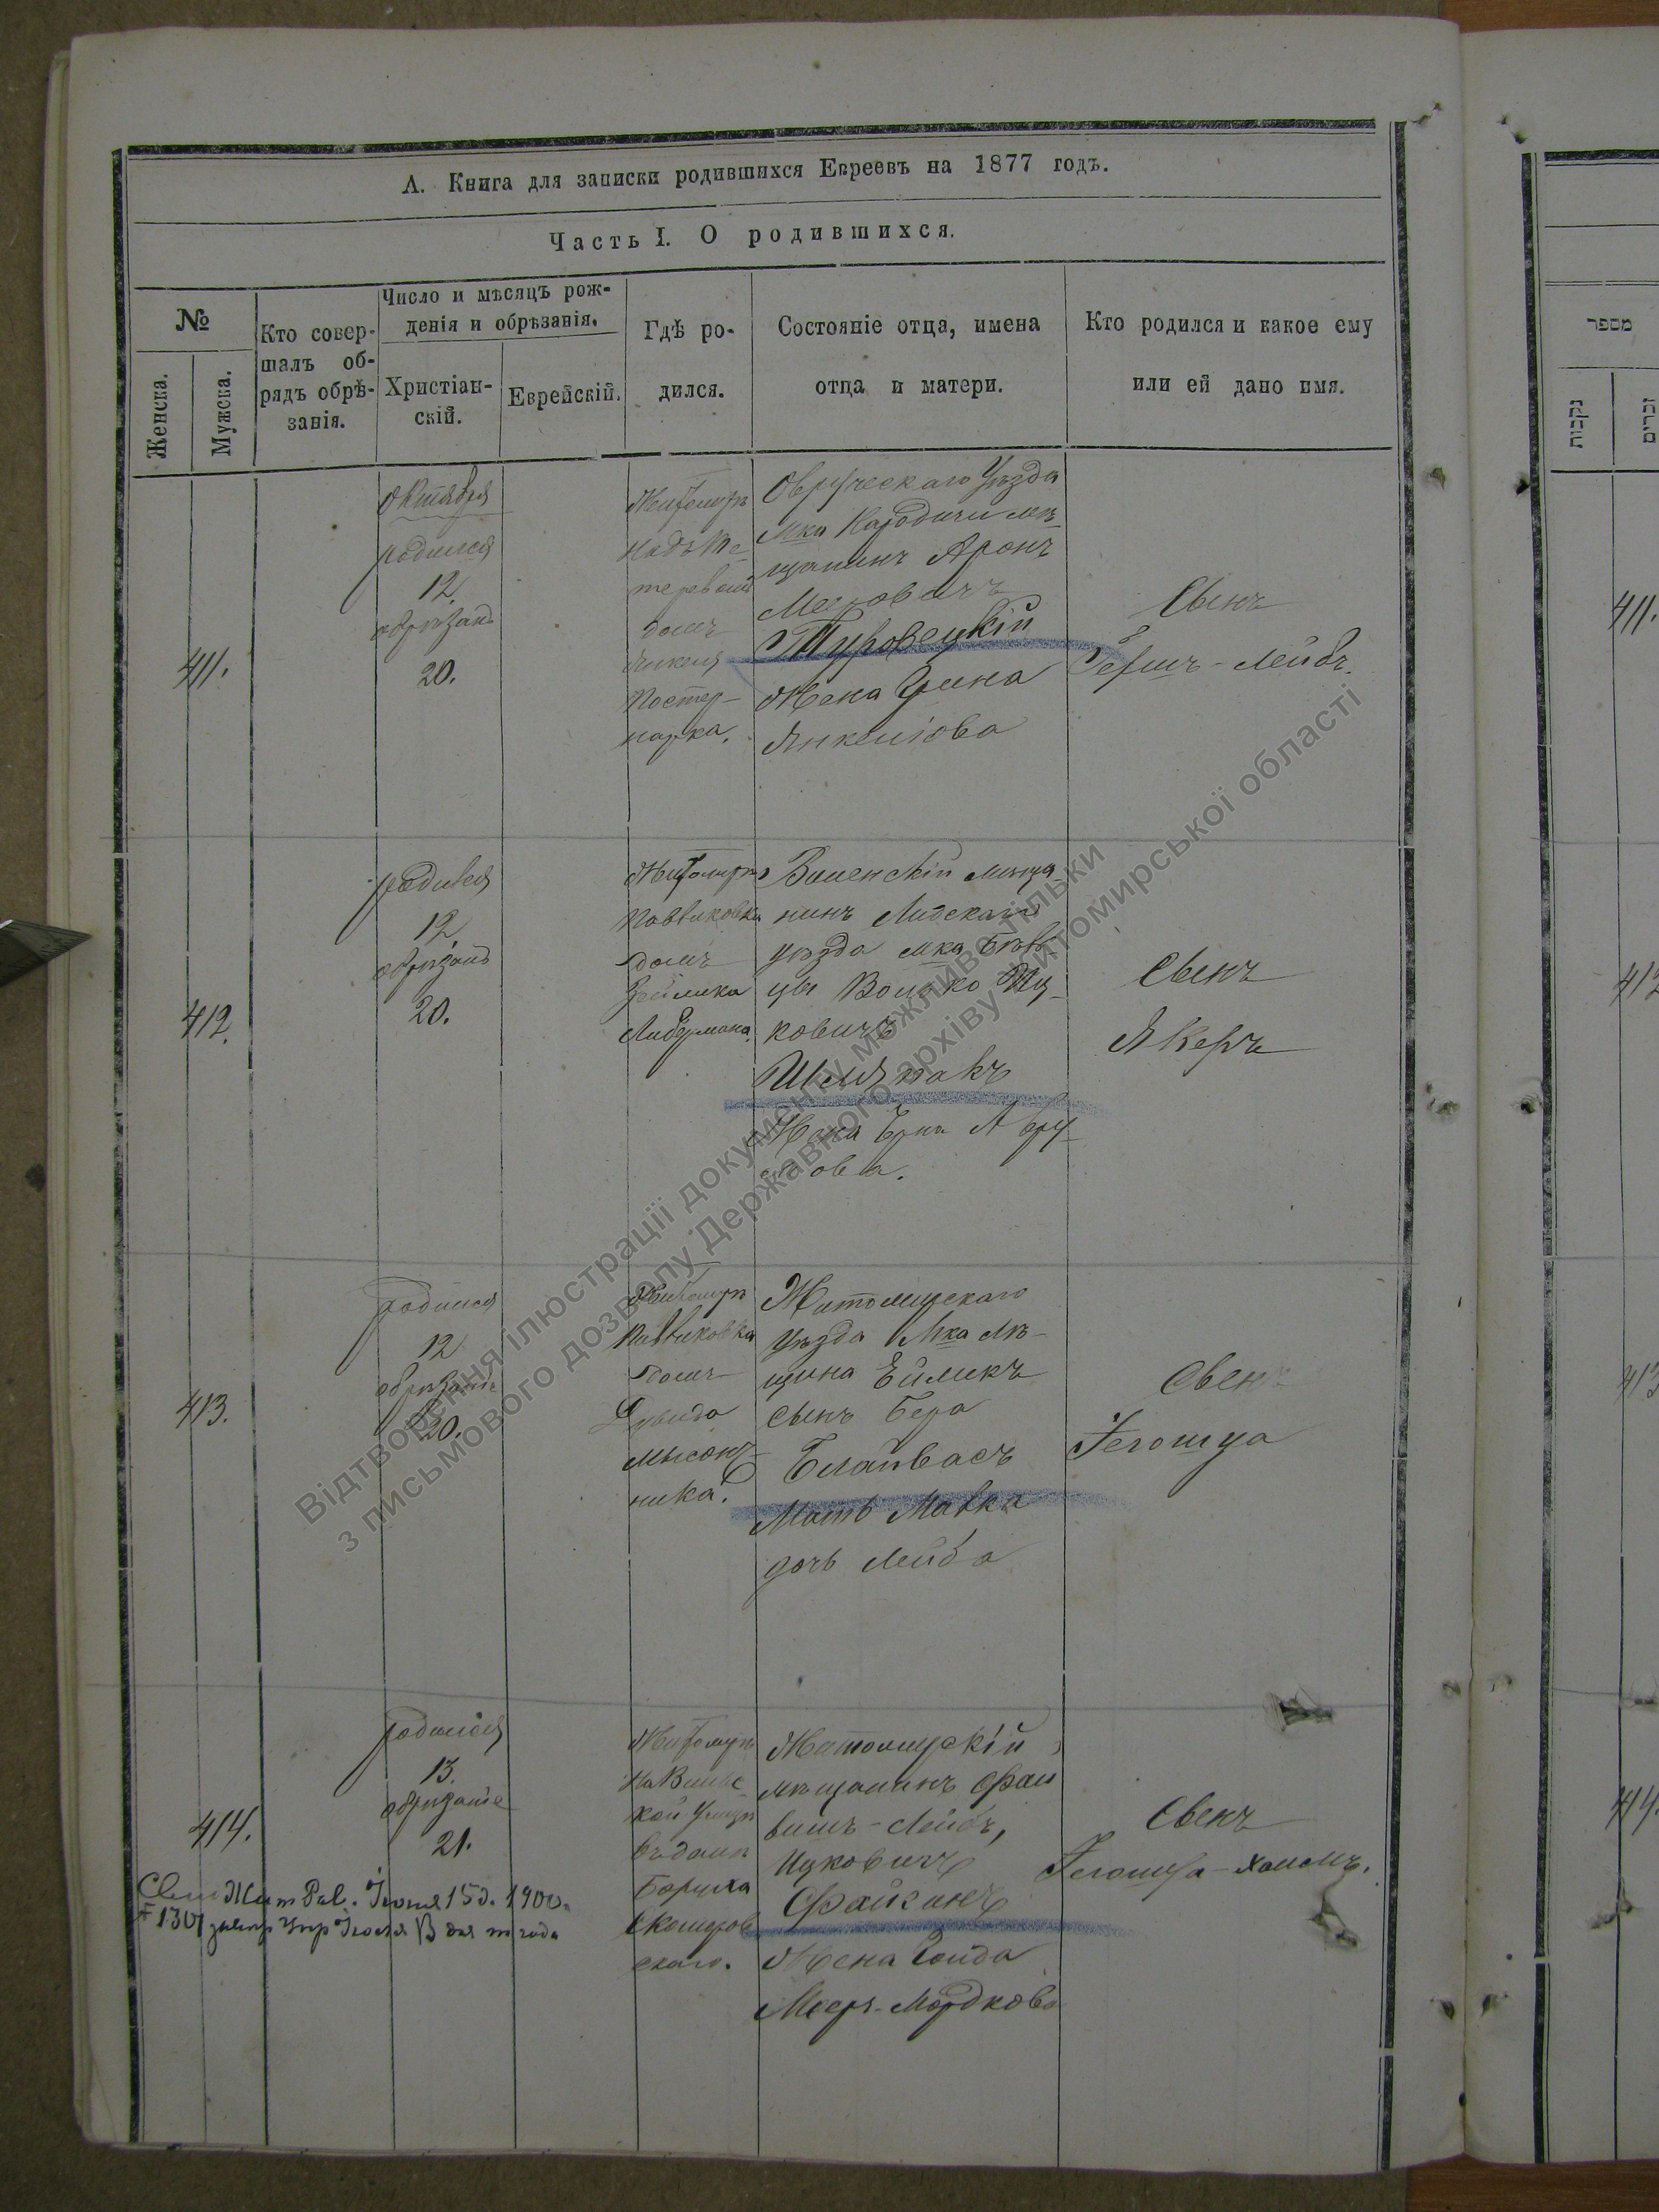 А. Книга для записки родившихся Евреевъ на 1877 годъ.
Часть I. О родившихся.
№
Женска.
Мужска.
Кто совер-
шалъ об-
рядъ обрѣ-
занія.
Число и мѣсяцъ рож-
денія и обрѣзанія.
Христіан-
скій.
Еврейскій.
Гдѣ ро-
дился.
Состояніе отца, имена
отца и матери.
Кто родился и какое ему
или ей дано имя.
411.
Октября
родился
12.
обрѣзанъ
20.
Житомиръ
Надъ Те-
теревомъ
домъ
Янкеля
Постер-
нарка.
Овручскаго Уѣзда
Мка Народичи мѣ-
щанинъ Аронъ
Меровичъ
Туровецкій
Жена Цина
Янкелiова
Сынъ
Гершъ-Лейбъ.
412.
родился
12
обрѣзанъ
20.
Житомиръ
Павликовка
домъ
Либермана.
Виленскій мѣща-
нинъ Лидскаго
уѣзда мка
Иц-
ковичъ
Шмянакъ
Жена
Сынъ
Якеръ
413.
родился
12
обрѣзанъ
20.
Житомиръ
Павликовка
домъ
Давида
Житомирскаго
Уѣзда Мка мѣ-
щина Ейликъ
сынъ Бера
Блайвасъ
Мать Малка
дочь Лейба
Сынъ
Іегошуа
414.
родился
13.
обрѣзанъ
21.
Житомиръ
На Вильс-
кой Улицѣ
въ домѣ
Боруха
Скоморов
скаго.
Житомирскій
мѣщанинъ Фай
вишъ-Лейбъ,
Ицковичъ
Файганъ
Жена Гольда
Мееръ-Мордкова
Сынъ
Іегошуа-Хаимъ.
Жит Рав. Іюня 15 д. 1900
מספר
נקבות
זכרים
411.
412
413
414.
Відтворення ілюстрації документу можливе тільки
з письмового дозволу Державного архіву Житомирської області